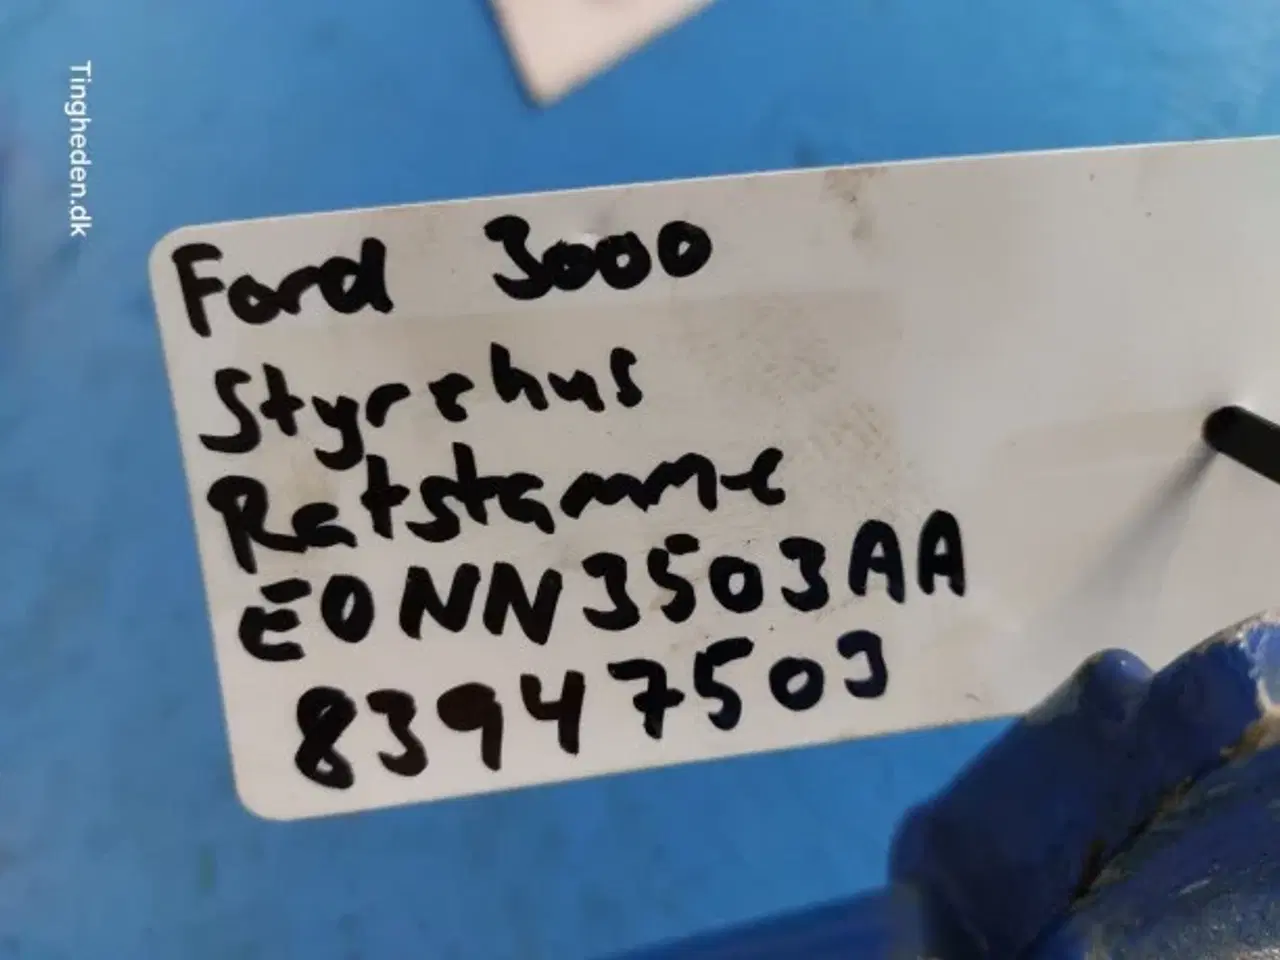 Tingheden.dk
Ford 3000
Styrehus
Ratstamme
E0NN3503AA
83947503